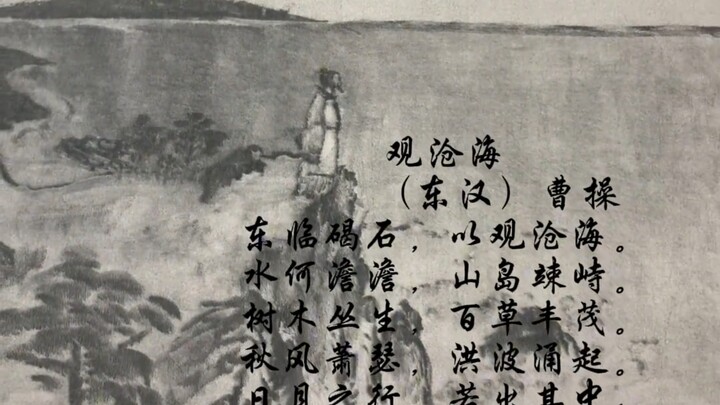 观沧海
（东汉）曹操
东临碣石，以观沧海。
水何澹澹，山岛竦峙。
树木丛生，百草丰茂。
秋风萧瑟，洪波涌起。
日月之行，若出其中